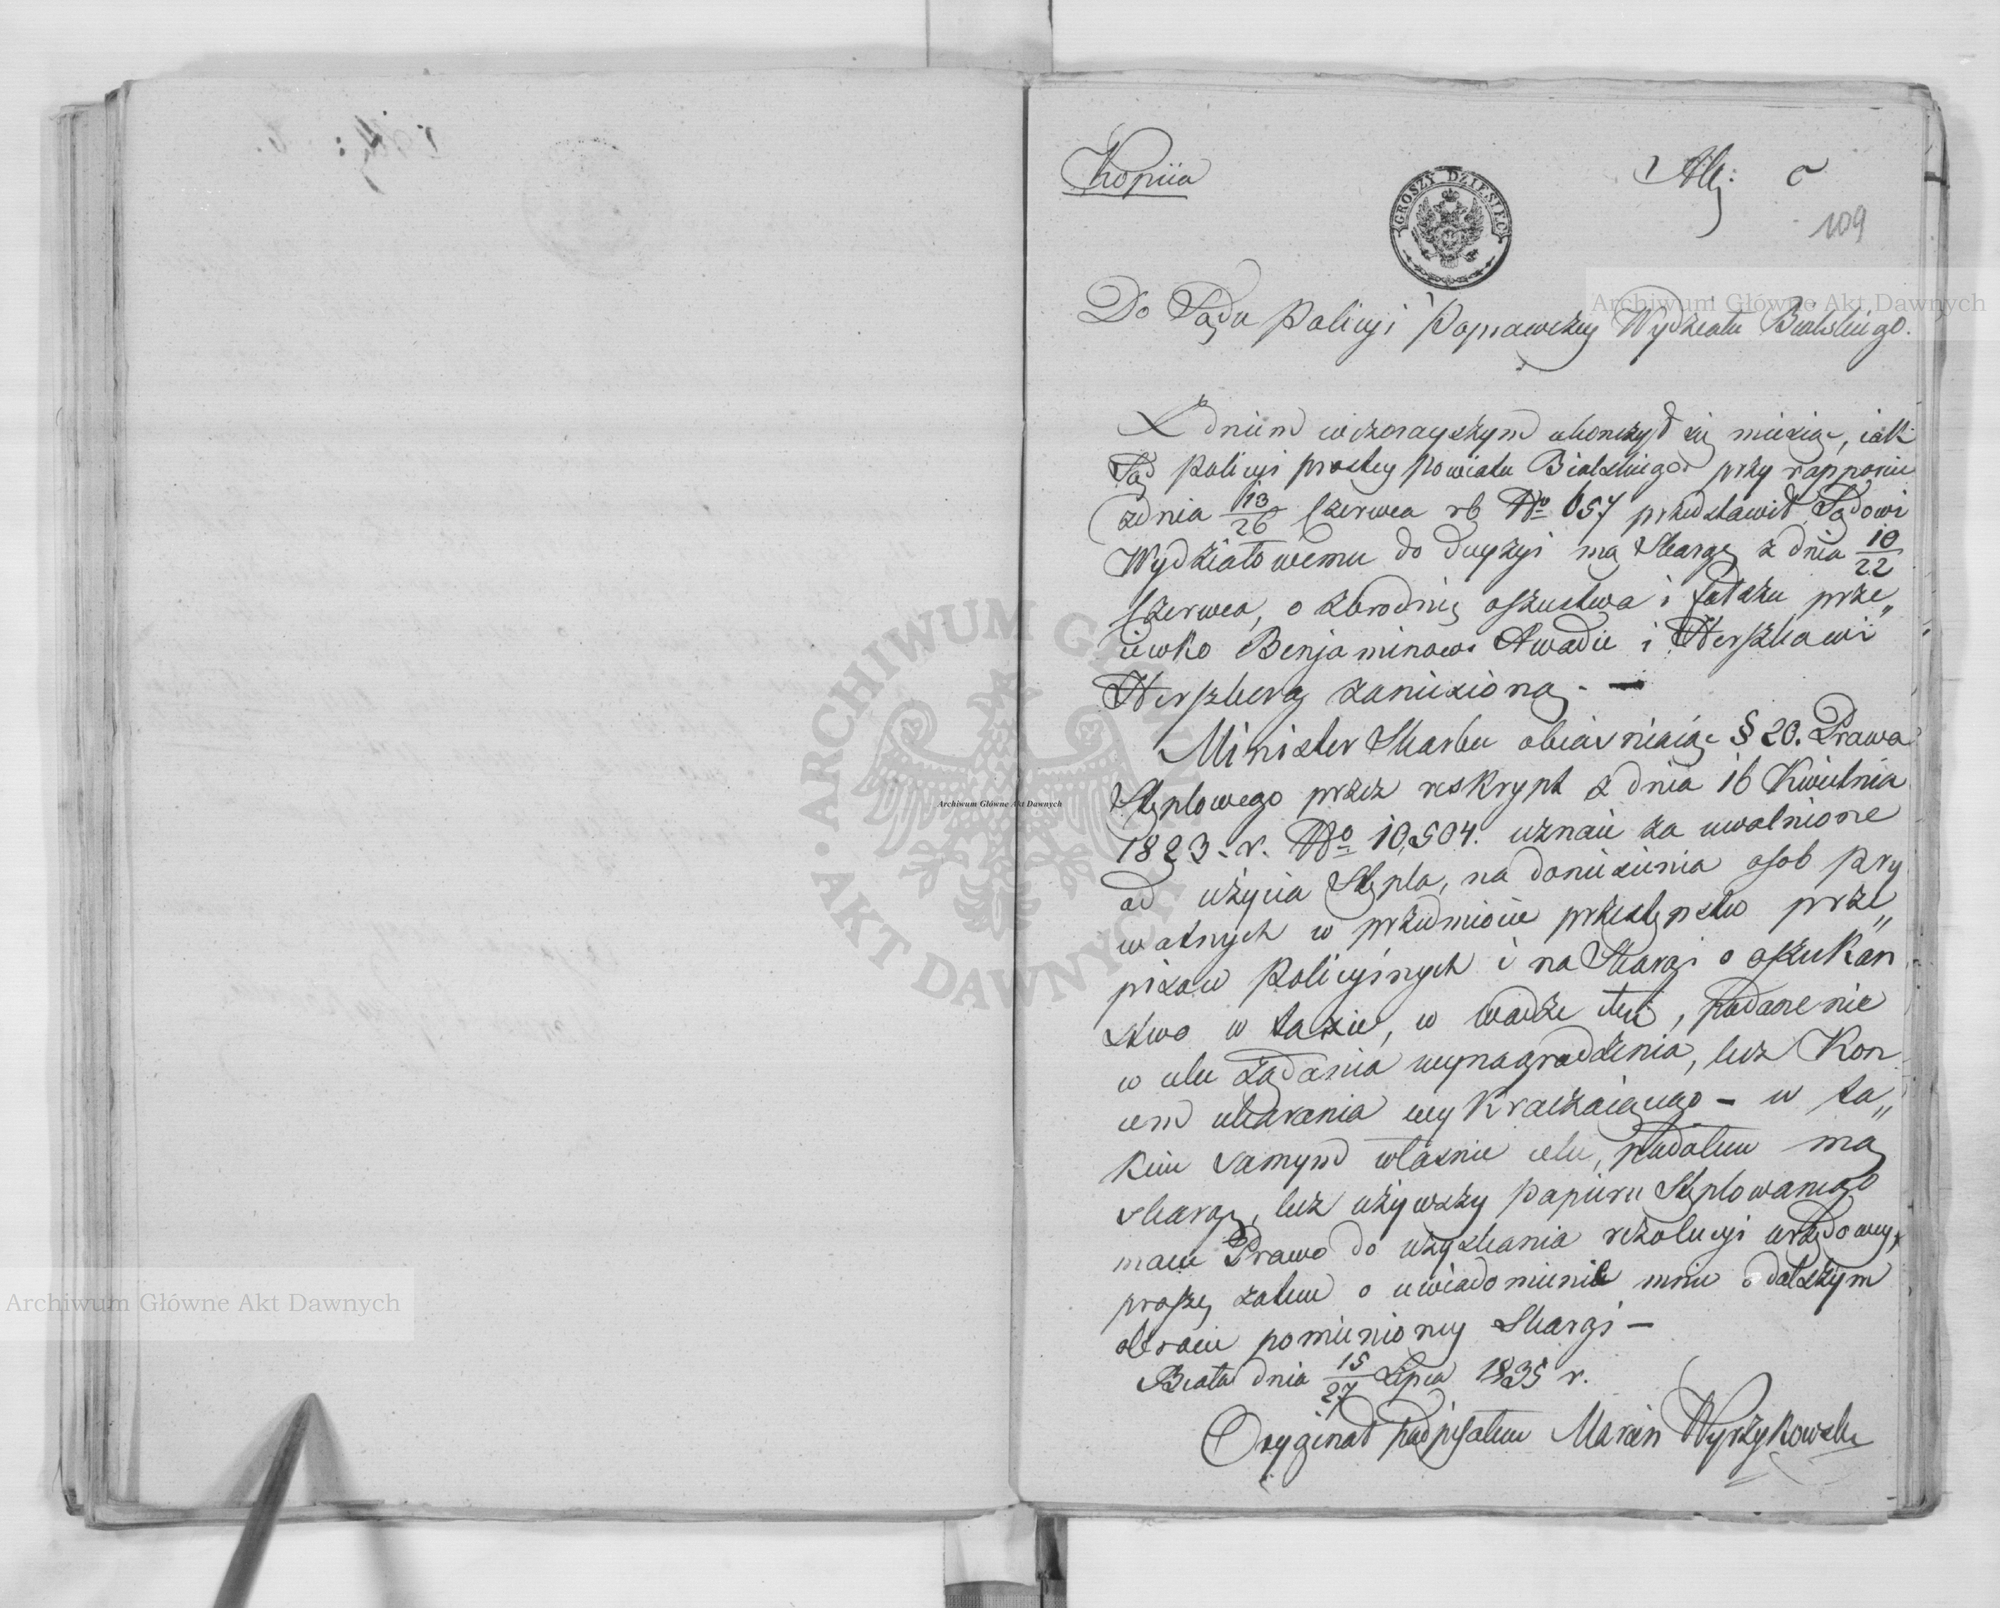 Kopiia
Alleg: C
109
GROSZY DZIESIEC
Do Sądu Policyi Poprawczey Wydziału Bialskiego.
Z dniem wczorayszym ukonczył się miesiąc, iak
Sąd Policyi prostey Powiatu Bialskiego przy rapporcie
z dnia 13/26 Czerwca rb No 657 przedstawił Sądowi
Wydziałowemu do decyzyi mą Skargę z dnia 10/22
Czerwca, o zbrodnię oszustwa i fałszu prze„
ciwko Benjaminowi Awadie i Herszkowi
Herszberg zaniesioną. —
Minister Skarbu obiaśniaiąc § 20. Prawa
Stęplowego przez reskrypt z dnia 16 Kwietnia
1823. r. No 10,504. uznaie za uwolnione
od użycia Stępla, na doniesienia osob pry
watnych w przedmiocie przestępstw prze„
pisow Policyinych i na Skargi o oszukań
stwo w taxie, w wadze etc, podane nie
w celu żądania wynagrodzenia, lecz Kon
cem ukarania wykraczaiącego – w ta„
kim samym własnie celu, podałem mą
skargę, lecz używszy papieru Stęplowanego
mam Prawo do uzyskania rezolucyi urzędowey,
proszę zatem o uwiadomienie mnie o dalszym
obrocie pomienioney Skargi —
Biała dnia 15/27 Lipca 1835 r.
Oryginał podpisałem Marcin Wyrzykowski
Archiwum Główne Akt Dawnych
Archiwum Główne Akt Dawnych
Archiwum Główne Akt Dawnych
ARCHIWUM GŁÓWNE AKT DAWNYCH